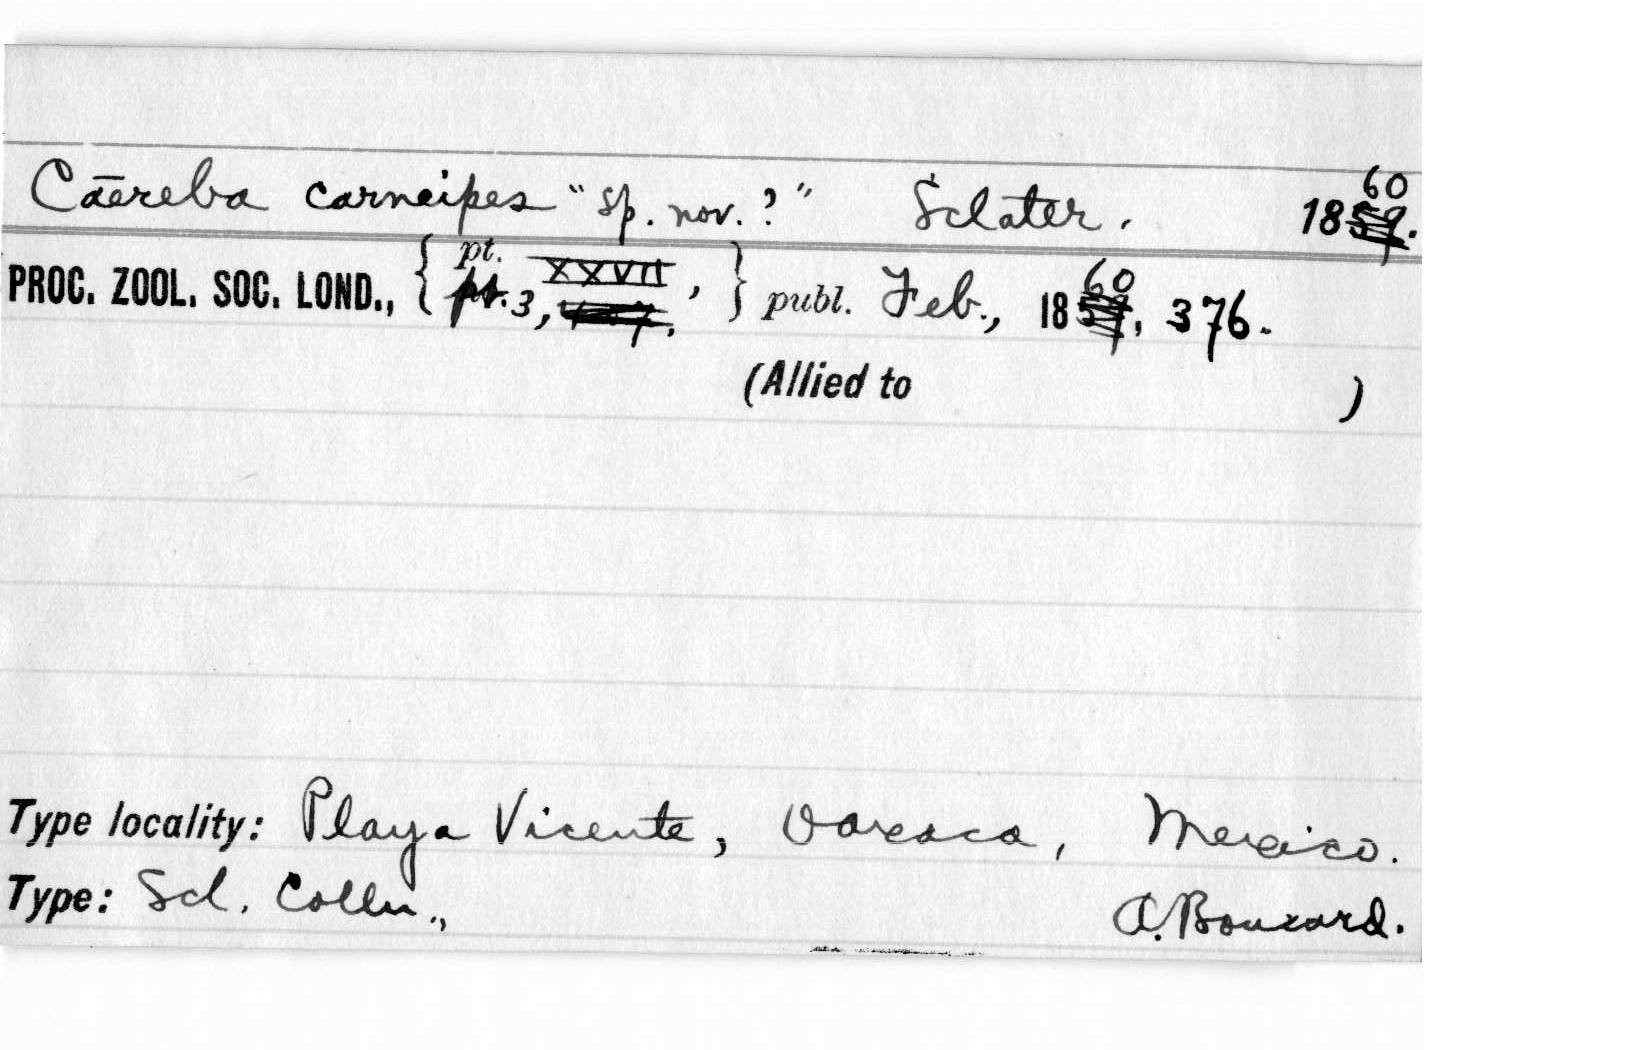 Cāereba carneipes "sp. nov.?" Sclater. 1860.
PROC. ZOOL. SOC. LOND., { pt. XXVII, pt. 3, } publ. Feb., 1860, 376.
(Allied to )
Type locality: Playa Vicente, Oaxaca, Mexico.
Type: Scl. Colln., A. Boucard.